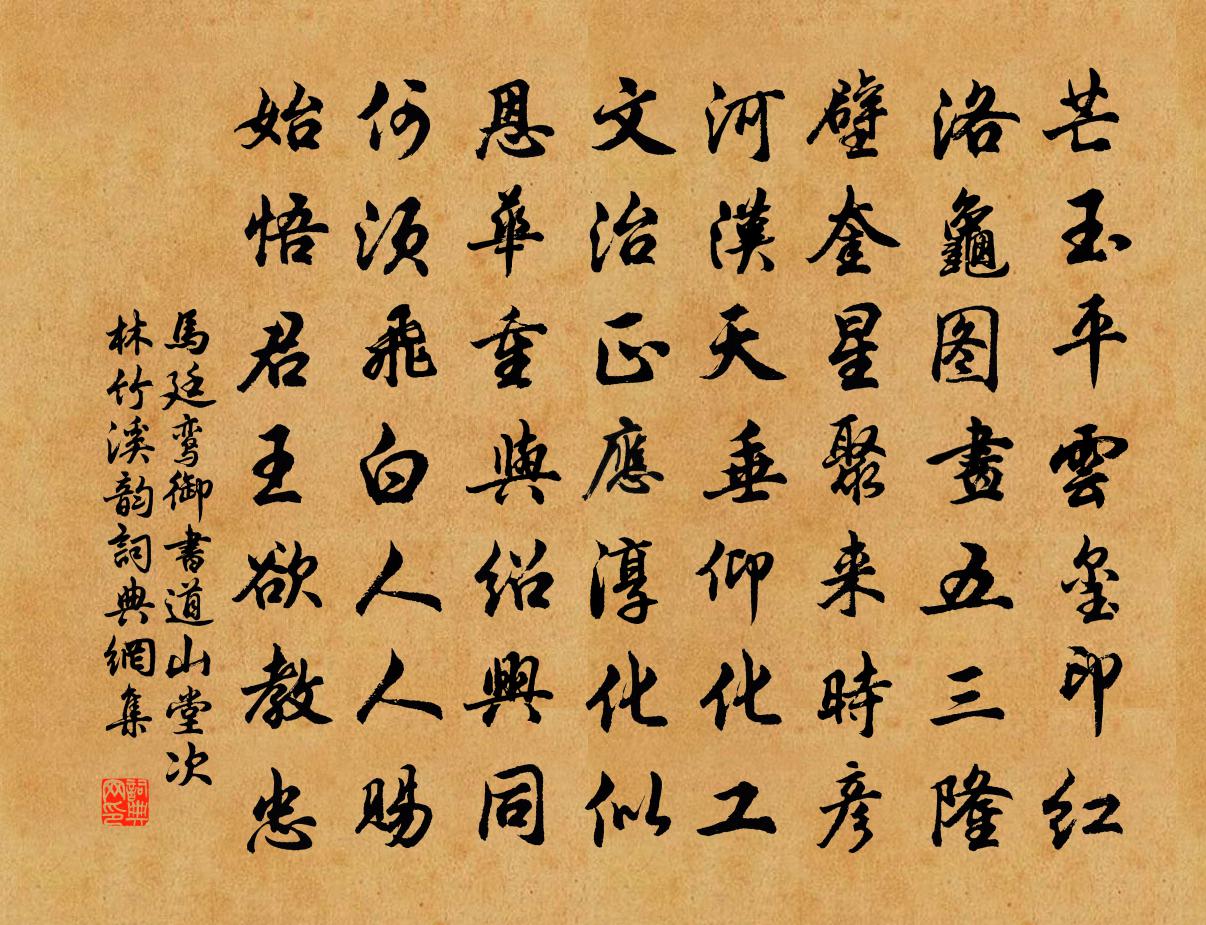 芒玉平雲壐印红
洛龜图畫五三隆
壁奎星聚来時彦
河漢天垂仰化工
文治正應淳化似
恩華重與绍興同
何須飛白人人賜
始悟君王欲教忠
馬廷鸾御書道山堂次
林竹溪韵詞典網集
詞典网印